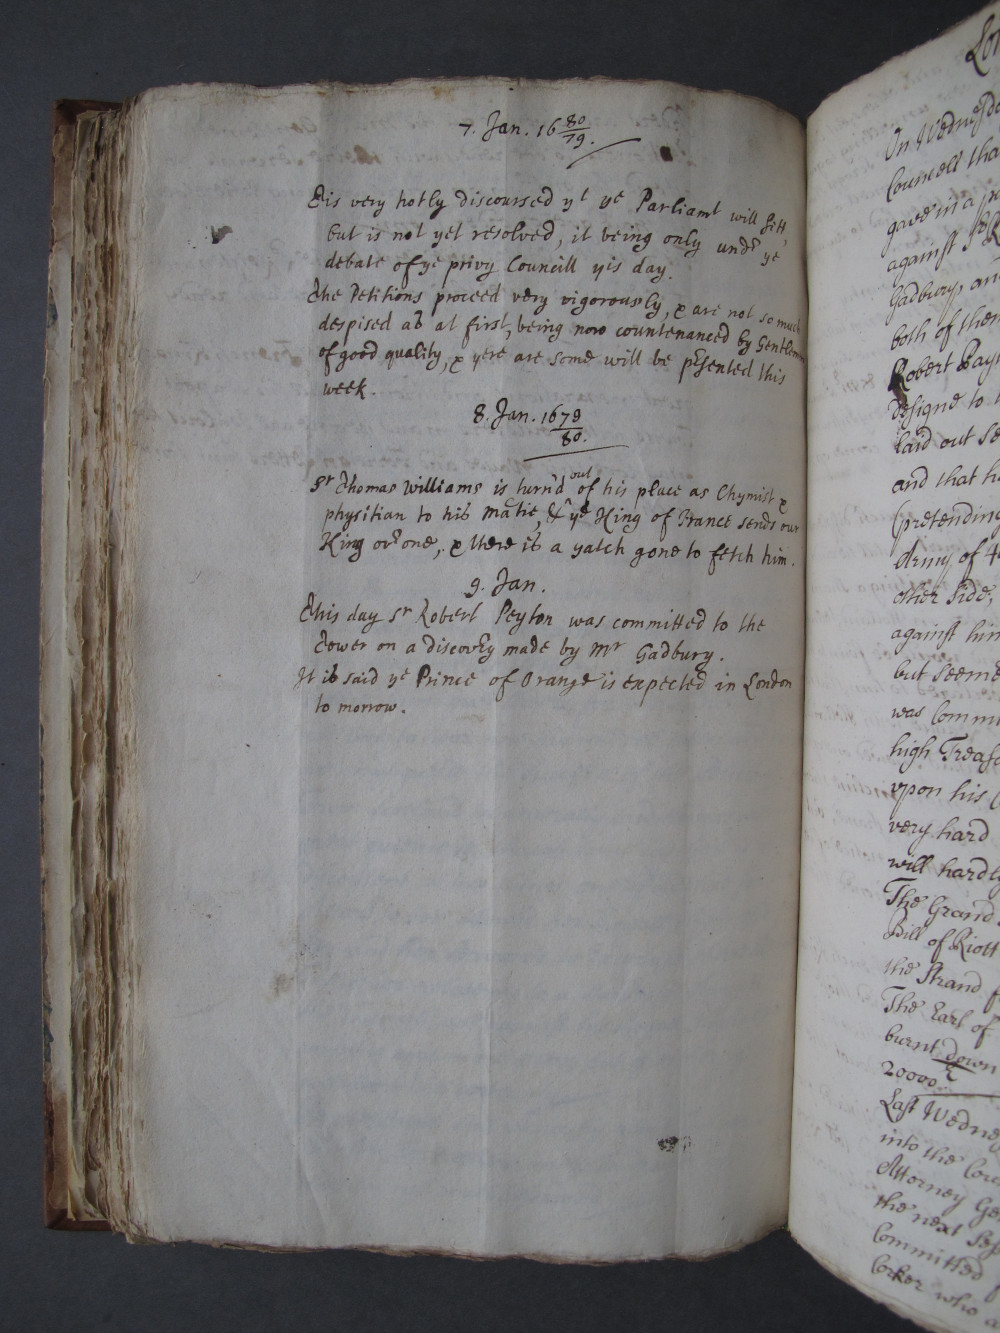 7. Jan. 16 80/79.
Tis very hotly discoursed yt ye Parliamt will sitt,
but is not yet resolved, it being only undr ye
debate of ye privy Councill yis day.
The Petitions proceed very vigorously, & are not so much
despised as at first, being now countenanced by Gentlemen
of good quality, & yere are some will be prsented this
week.
8. Jan. 1679/80.
Sr Thomas Williams is turn'd out of his place as Chymist &
physitian to his matie, & ye King of France sends our
King or one, & there is a yatch gone to fetch him.
9. Jan.
This day Sr Robert Peyton was committed to the
Tower on a discovry made by Mr Gadbury.
It is said ye Prince of Orange is expected in London
to morrow.
On Wednesda
Councell tha
gave in a
against Sr R
Gadbury, an
both of them
Robert Pay
designe to
laid out se
and that h
(pretending
Army of 4
other side,
against him
but seeme
was commi
high Treaso
upon his
very hard
will hardly
The Grand
Bill of Riott
the Strand f
The Earl of
burnt down
20000.
Last Wedne
into the
Attorney Ge
the next Sess
Committed
Corker who a